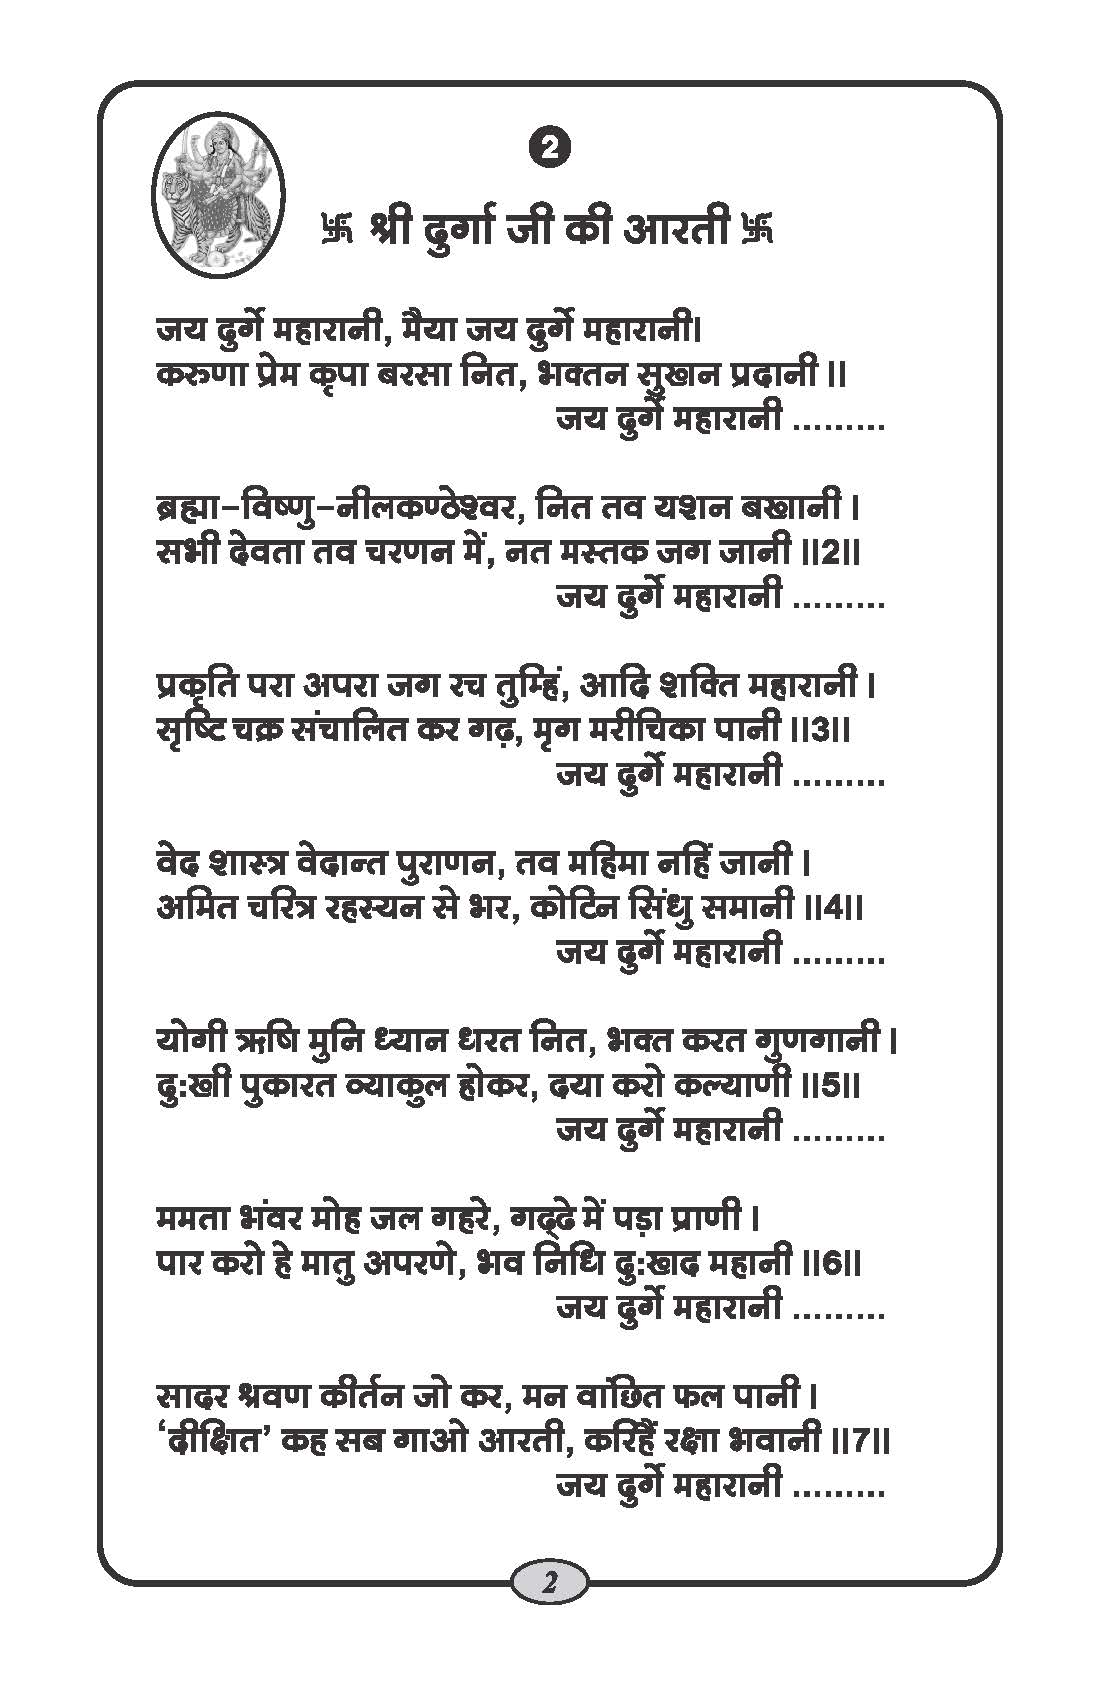 2
卐 श्री दुर्गा जी की आरती 卐
जय दुर्गे महारानी, मैया जय दुर्गे महारानी।
करुणा प्रेम कृपा बरसा नित, भक्तन सुखन प्रदानी ।।
जय दुर्गे महारानी .........
ब्रह्मा-विष्णु-नीलकण्ठेश्वर, नित तव यशन बखानी ।
सभी देवता तव चरणन में, नत मस्तक जग जानी ।।2।।
जय दुर्गे महारानी .........
प्रकृति परा अपरा जग रच तुम्हिं, आदि शक्ति महारानी ।
सृष्टि चक्र संचालित कर गढ़, मृग मरीचिका पानी ।।3।।
जय दुर्गे महारानी .........
वेद शास्त्र वेदान्त पुराणन, तव महिमा नहिं जानी ।
अमित चरित्र रहस्यन से भर, कोटिन सिंधु समानी ।।4।।
जय दुर्गे महारानी .........
योगी ऋषि मुनि ध्यान धरत नित, भक्त करत गुणगानी ।
दुःखी पुकारत व्याकुल होकर, दया करो कल्याणी ।।5।।
जय दुर्गे महारानी .........
ममता भंवर मोह जल गहरे, गढ्ढे में पड़ा प्राणी ।
पार करो हे मातु अपरणे, भव निधि दुःखद महानी ।।6।।
जय दुर्गे महारानी .........
सादर श्रवण कीर्तन जो कर, मन वांछित फल पानी ।
‘दीक्षित’ कह सब गाओ आरती, करिहैं रक्षा भवानी ।।7।।
जय दुर्गे महारानी .........
2